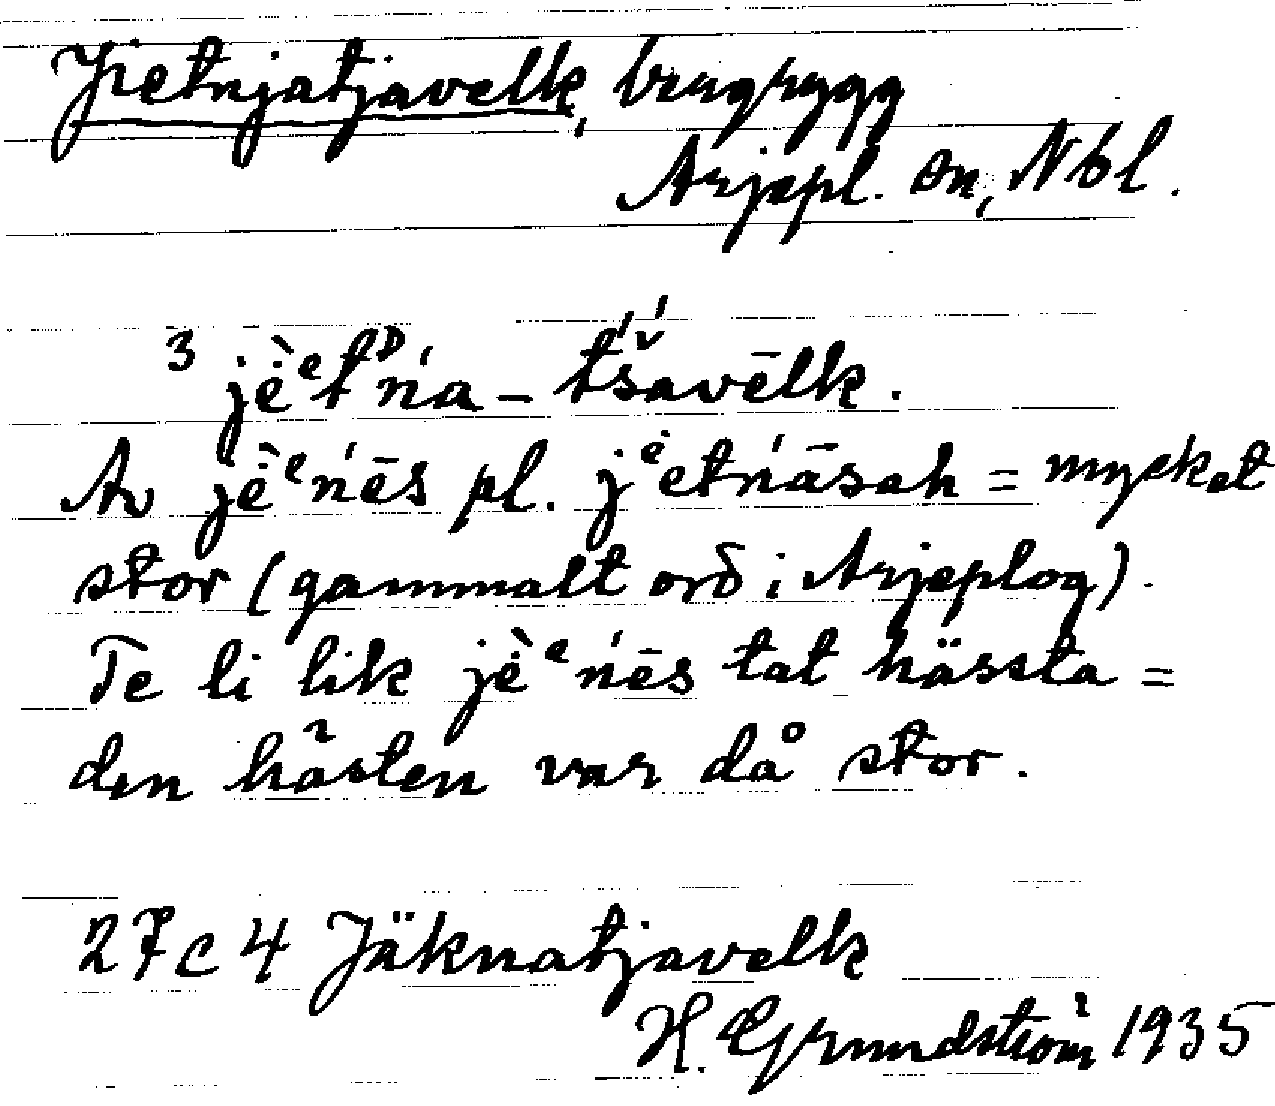 Jietnjatjavelk, bergrygg
Arjepl. sn, Nbl.
3 jèᵉtᴰńa - t́š́avēlk.
Av jèᵉńēs pl. jėetńāsah = mycket
stor (gammalt ord i Arjeplog).
Te li lik jèᵉńēs tat hässta =
den hästen var då stor.
27c4 Jäknatjavelk
H. Grundström 1935